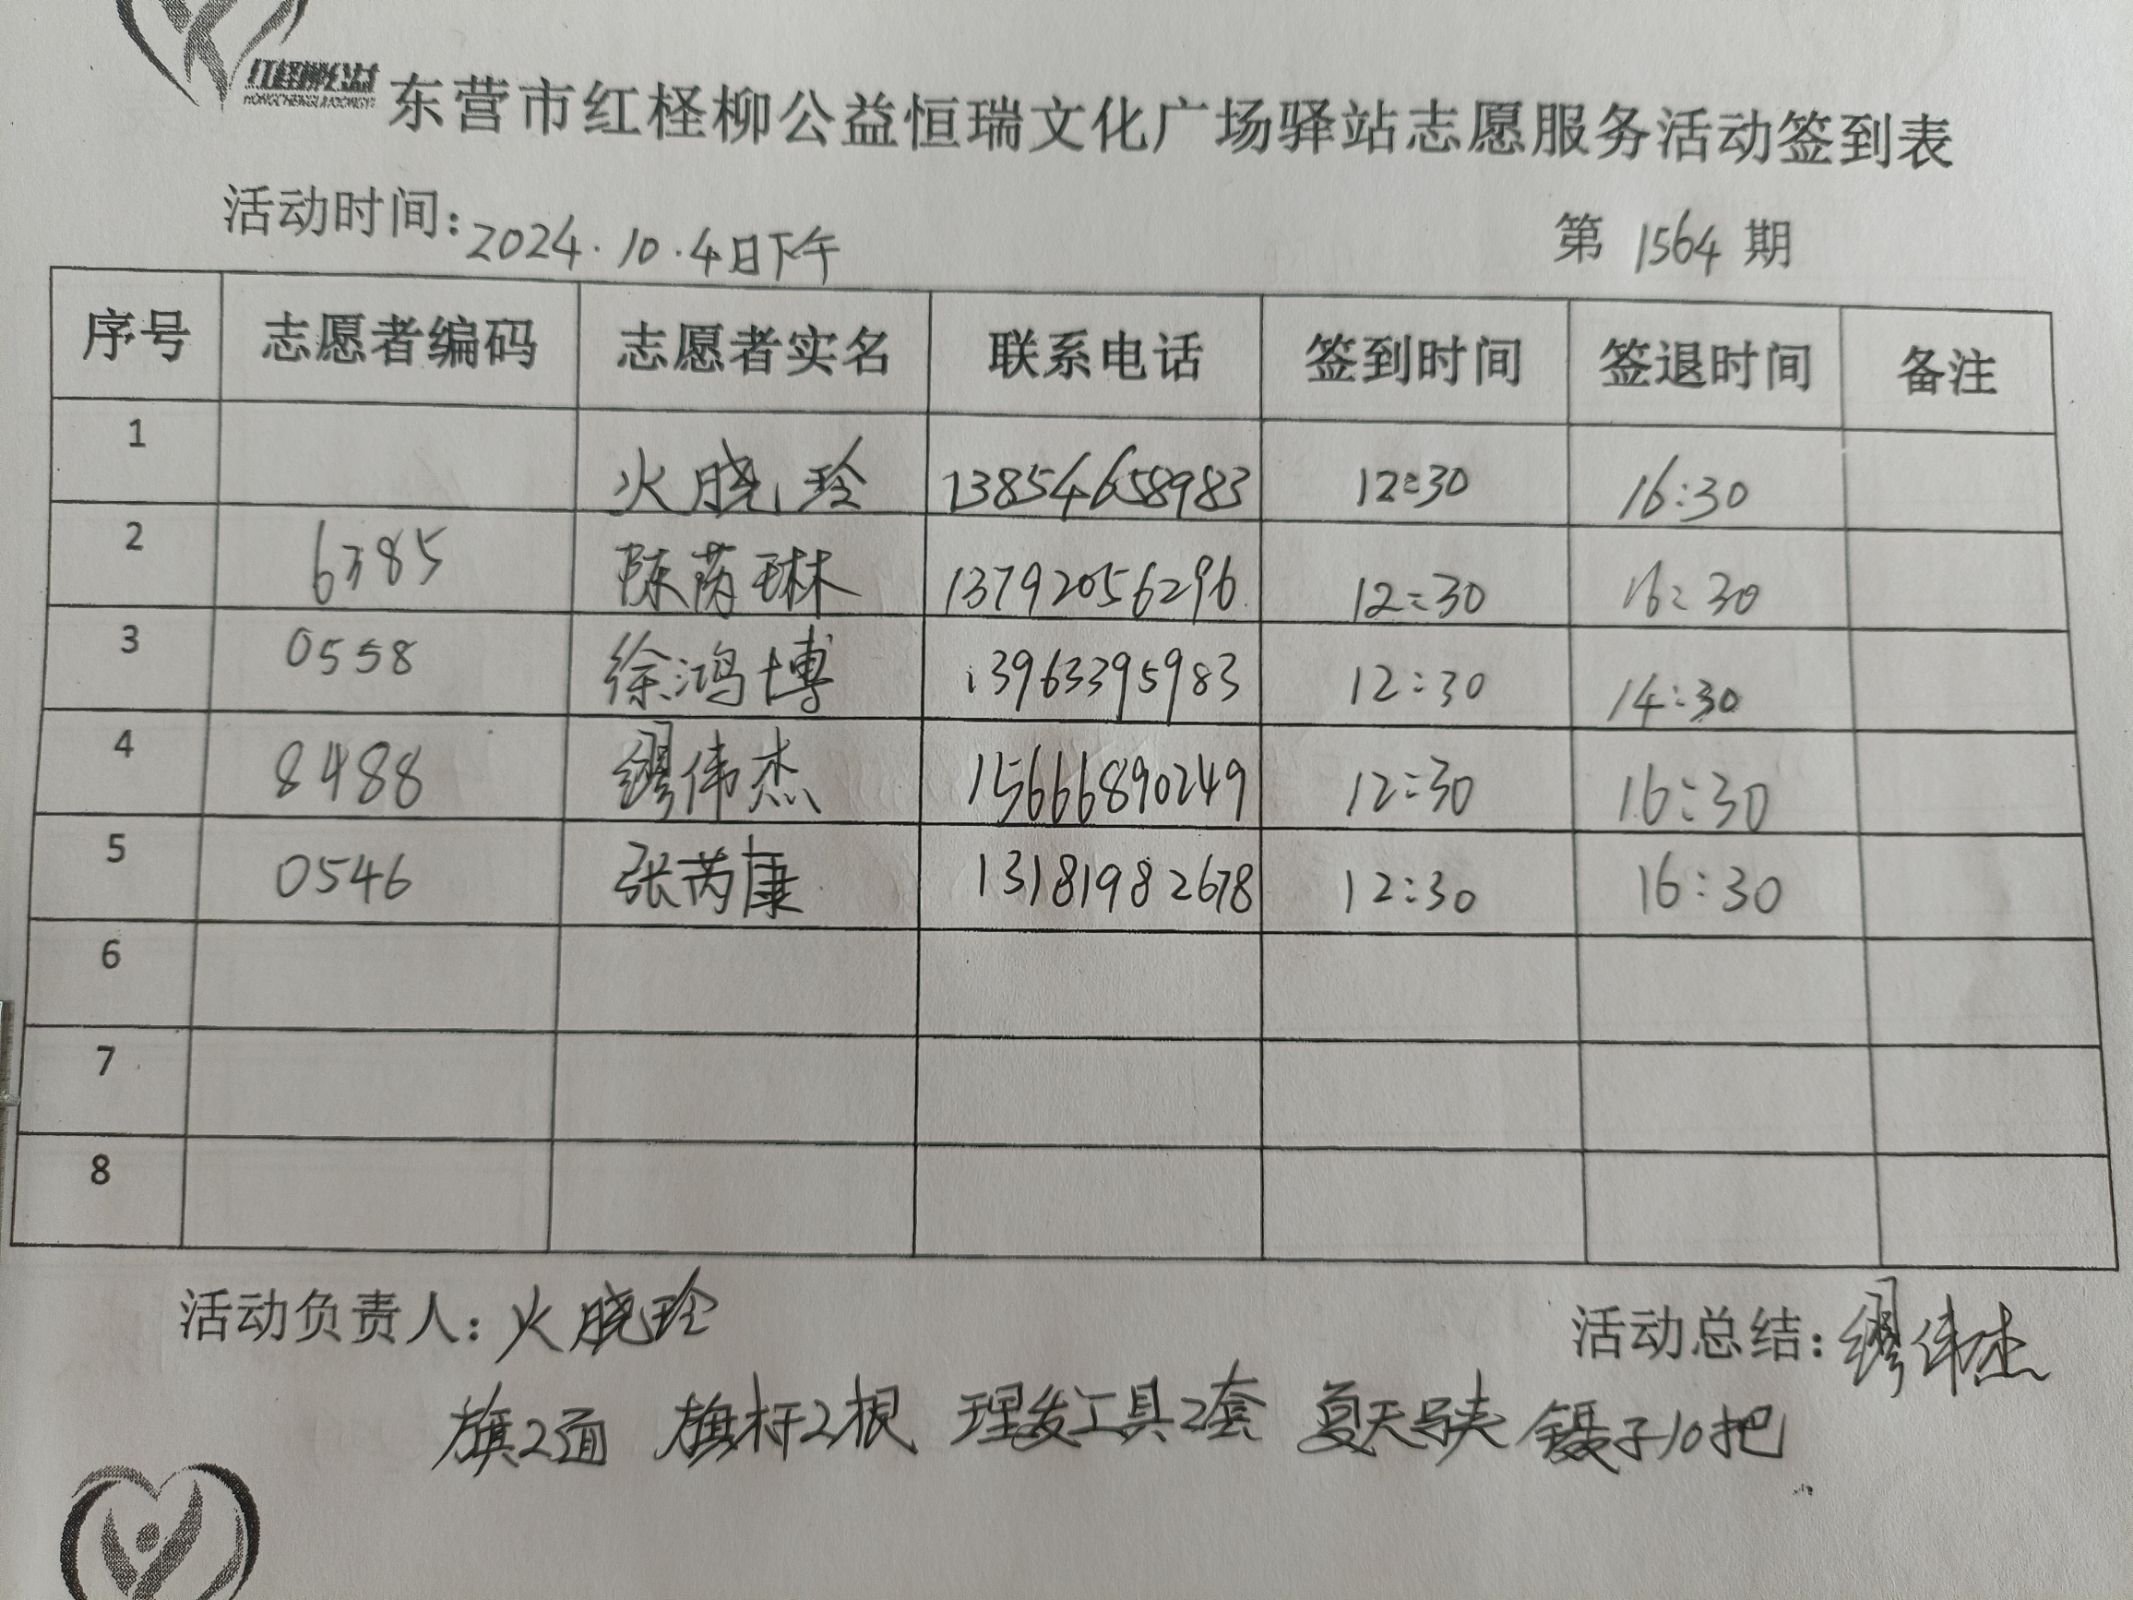 红柽柳公益
HONGCHENGLIUGONGYI
东营市红柽柳公益恒瑞文化广场驿站志愿服务活动签到表
活动时间：2024.10.4日下午 第 1564 期
序号 志愿者编码 志愿者实名 联系电话 签到时间 签退时间 备注
1 火晓玲 13854658983 12:30 16:30
2 陈芮琳 13792056296 12:30 16:30
3 0558 徐鸿博 13963395983 12:30 14:30
4 8488 缪伟杰 15666890249 12:30 16:30
5 0546 张芮康 13181982678 12:30 16:30
6
7
8
活动负责人：火晓玲 活动总结：缪伟杰
旗2面 旗杆2根 理发工具2套 夏天马夹 镊子10把